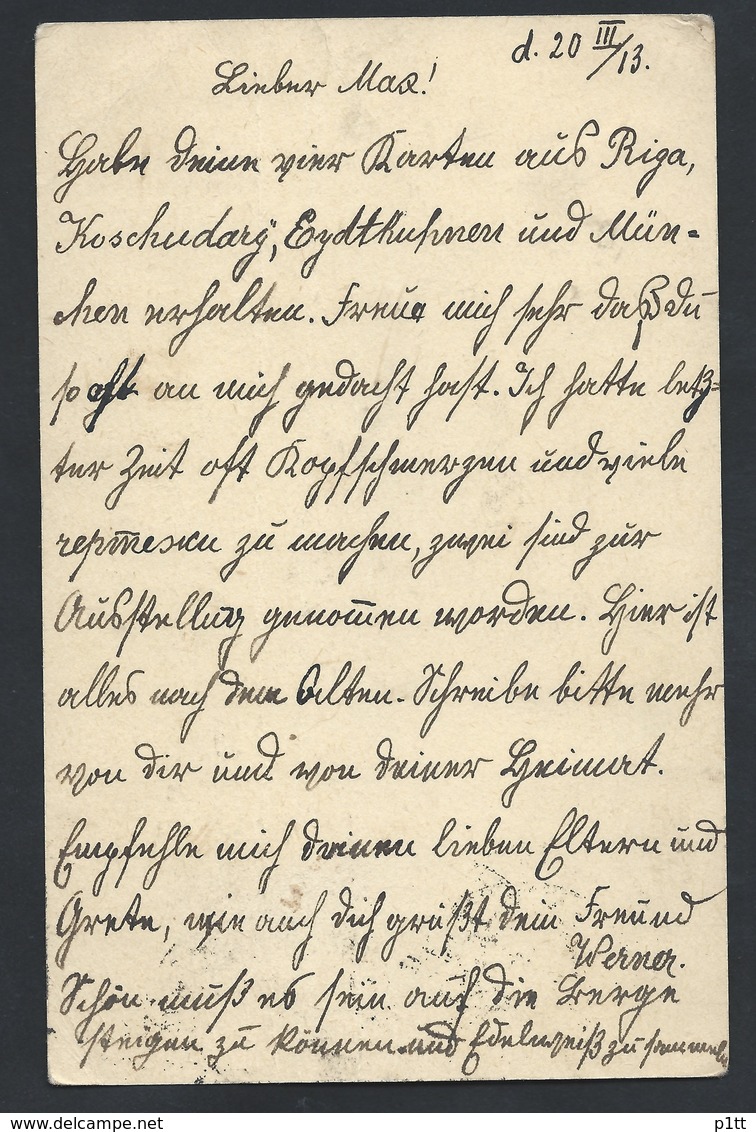 d. 20 III/13.
Lieber Max!
Habe deine vier Karten aus Riga,
Koschedary, Eydtkuhnen und Mün-
chen erhalten. Freue mich sehr daß du
so oft an mich gedacht hast. Ich hatte letz-
ter Zeit oft Kopfschmerzen und viele
чертежи zu machen, zwei sind zur
Ausstellug genom̄en worden. Hier ist
alles nach dem Alten. Schreibe bitte mehr
von dir und von deiner Heimat.
Empfehle mich deinen lieben Eltern und
Grete, wie auch dich grüßt dein Freund
Werner.
Schön muß es sein auf die Berge
steigen zu können und Edelweiß zu sammeln
p1tt